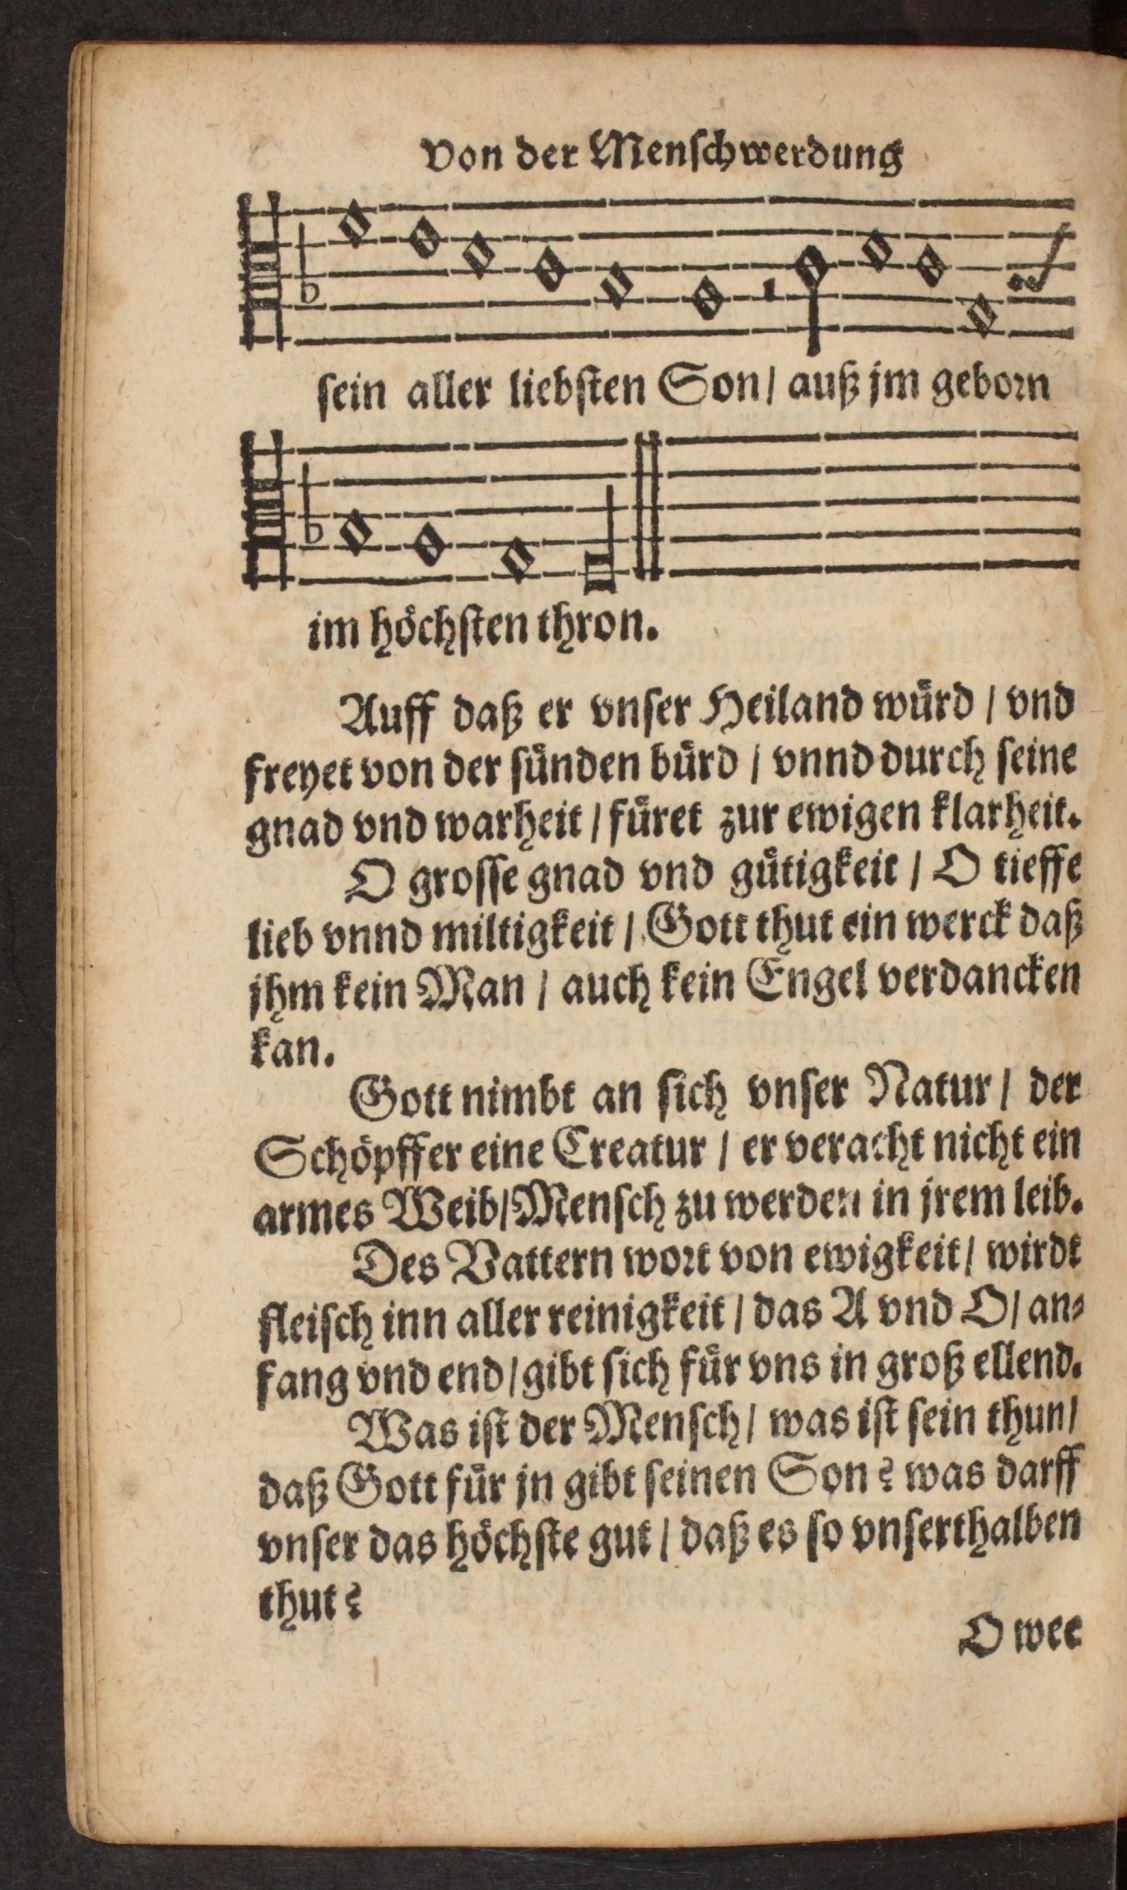 Von der Menſchwerdung
sein aller liebſten Son / auß jm geborn
im höchſten thron.
Auff daß er vnſer Heiland würd / vnd
freyet von der ſünden bürd / vnnd durch ſeine
gnad vnd warheit / füret zur ewigen klarheit.
O groſſe gnad vnd gütigkeit / O tieffe
lieb vnnd miltigkeit / Gott thut ein werck daß
jhm kein Man / auch kein Engel verdancken
kan.
Gott nimbt an ſich vnſer Natur / der
Schöpffer eine Creatur / er veracht nicht ein
armes Weib / Menſch zu werden in jrem leib.
Des Vattern wort von ewigkeit / wirdt
fleiſch inn aller reinigkeit / das A vnd O / an⸗
fang vnd end / gibt ſich für vns in groß ellend.
Was iſt der Menſch / was iſt ſein thun /
daß Gott für jn gibt ſeinen Son? was darff
vnſer das höchſte gut / daß es ſo vnſerthalben
thut?
O wee